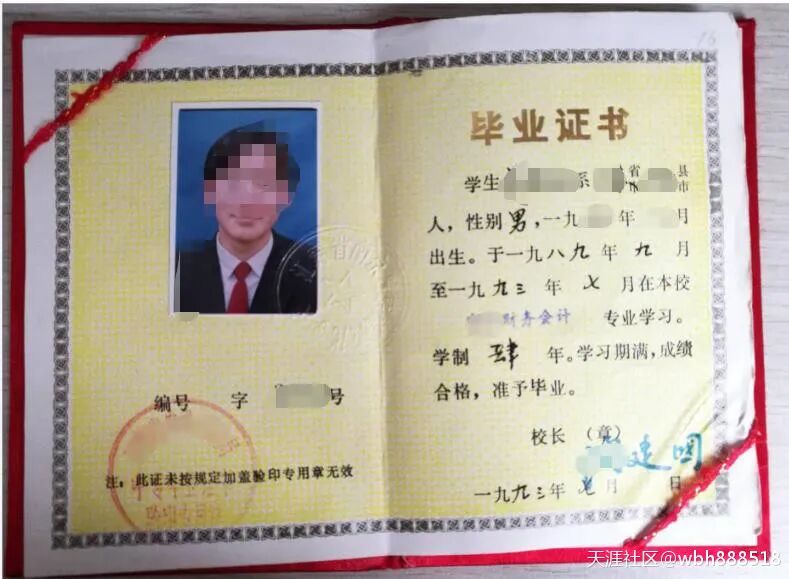 编号 字 号
注：此证未按规定加盖验印专用章无效
毕业证书
学生 系 省 县
市 市
人，性别男，一九 年 月
出生。于一九八九年九月
至一九九三年七月在本校
财务会计 专业学习。
学制 肆 年。学习期满，成绩
合格，准予毕业。
校长 （章）
建国
一九九三年七月 日
天涯社区@wbh888518